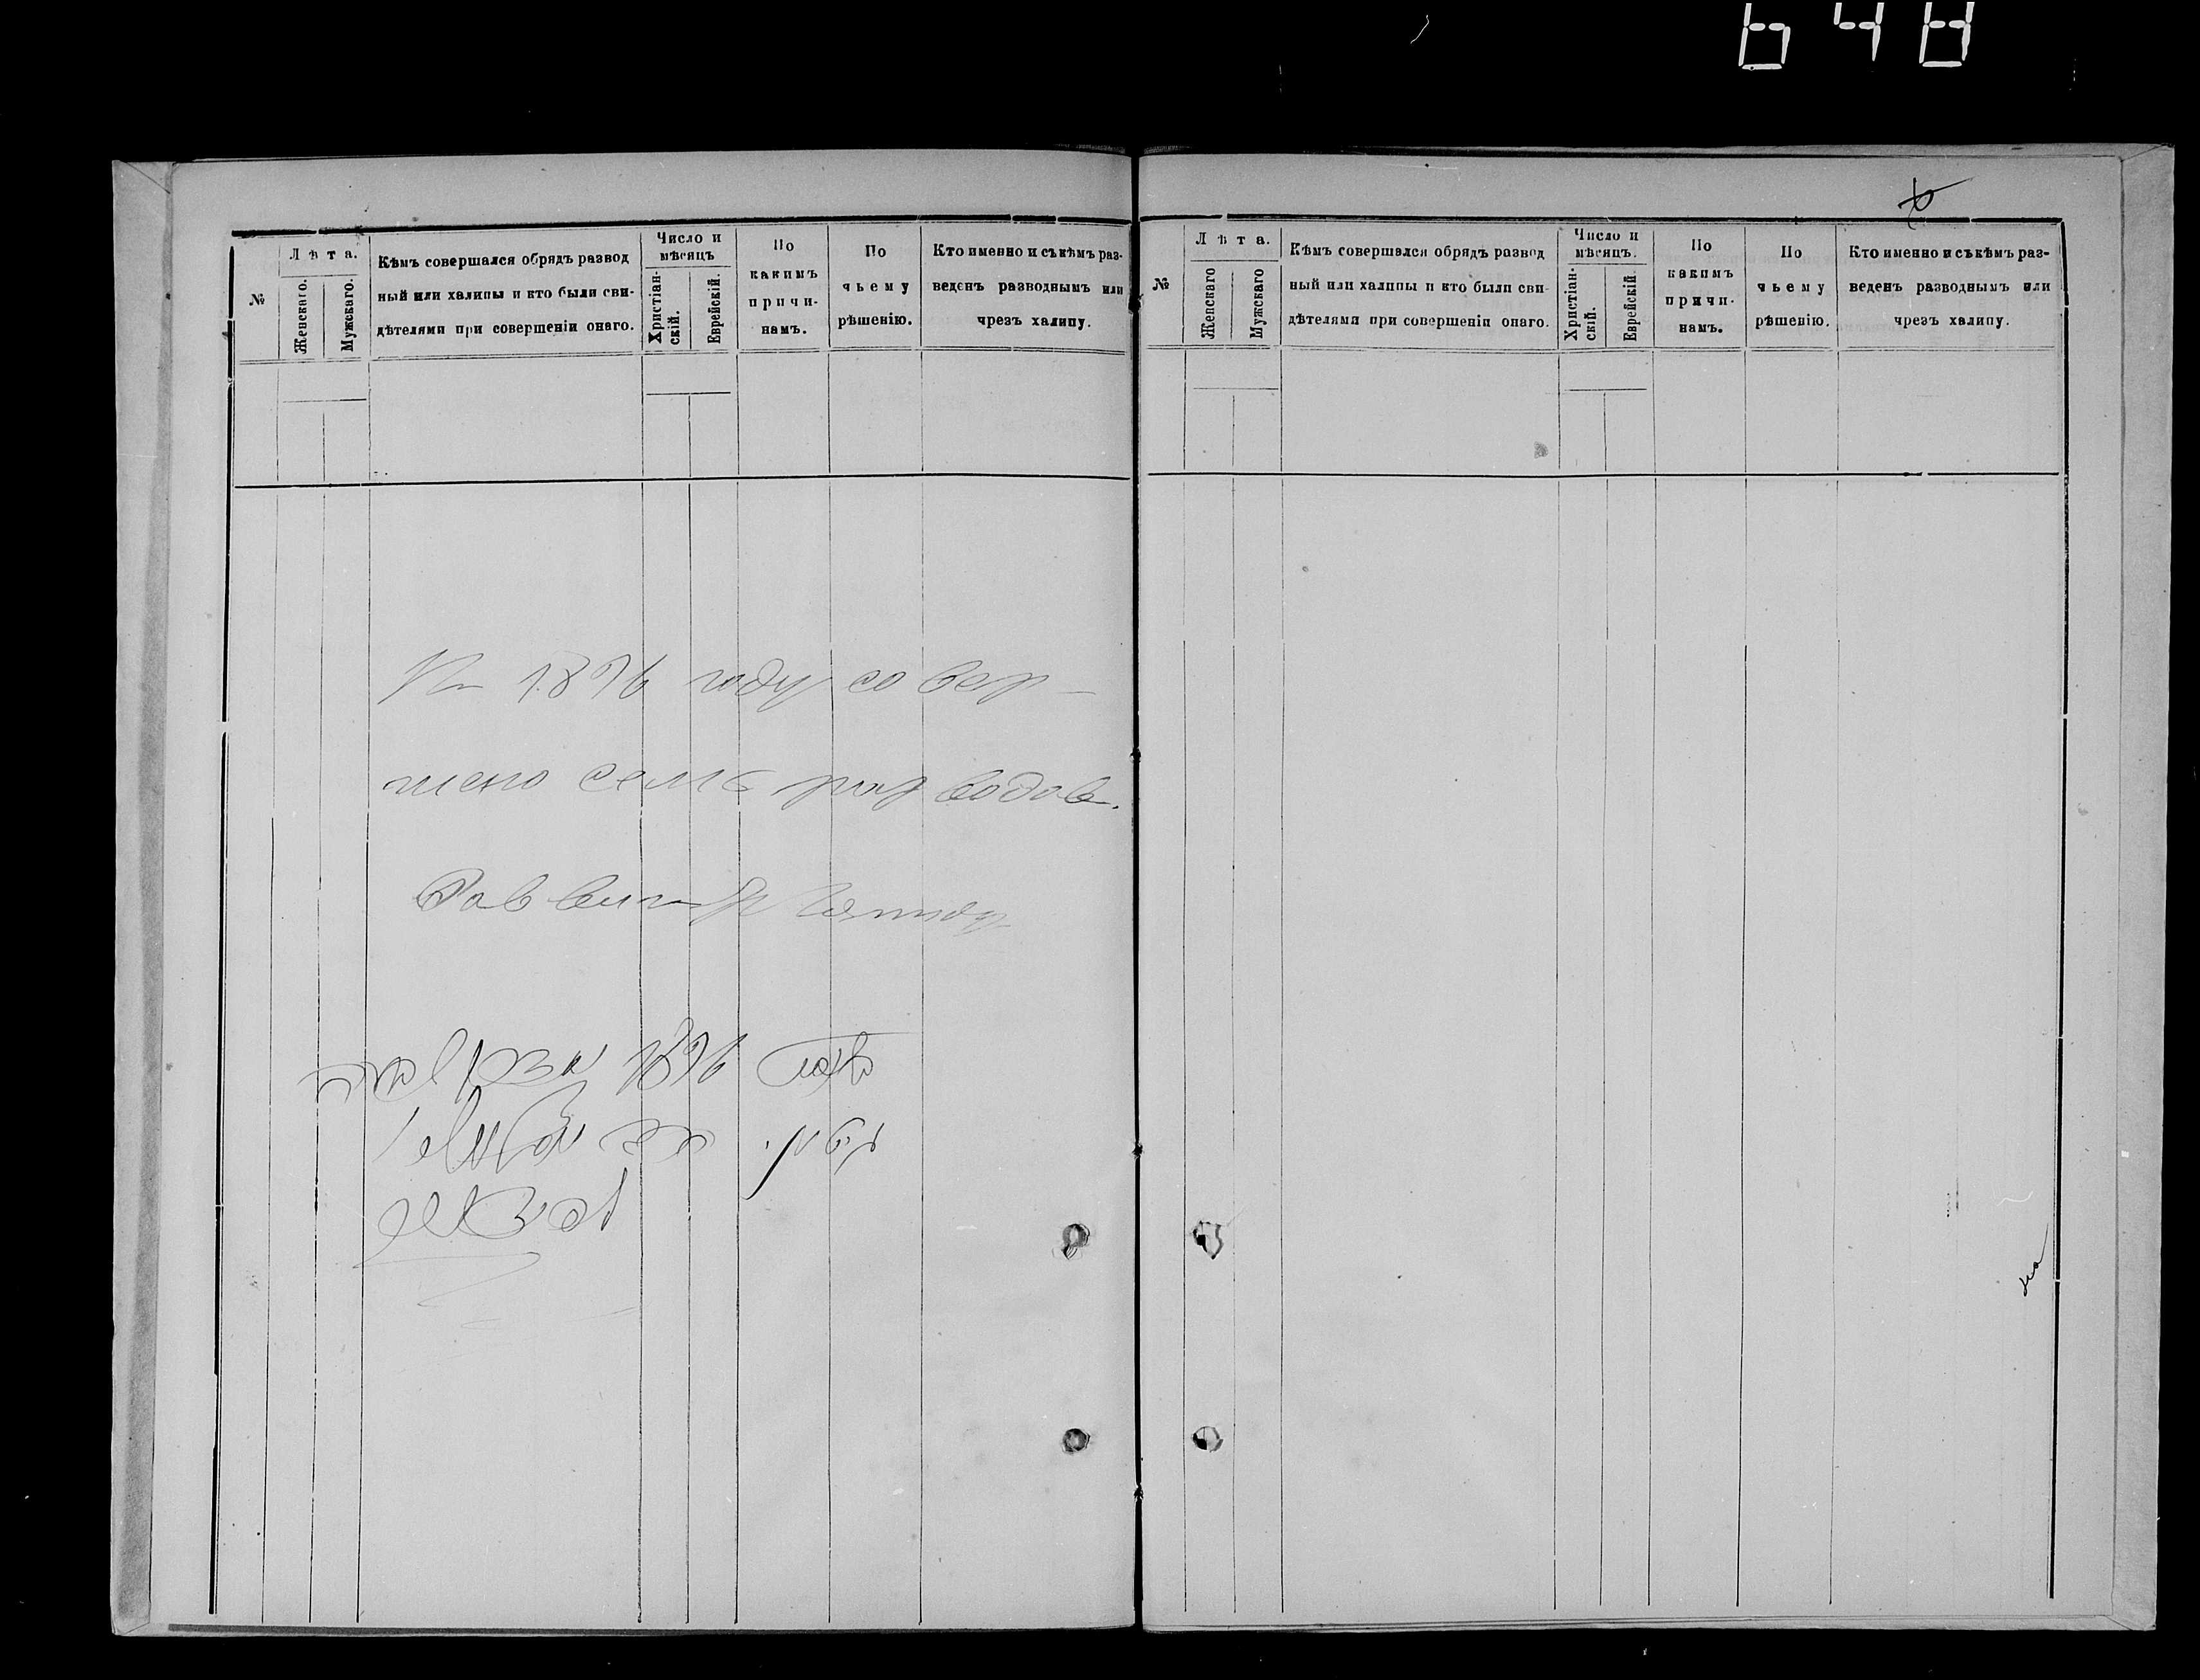 648
№
Лѣта.
Женскаго.
Мужскаго.
Кѣмъ совершался обрядъ развод
ный или халипы и кто были сви-
дѣтелями при совершеніи онаго.
Число и
мѣсяцъ
Христіан-
скій.
Еврейскій.
По
какимъ
причи-
намъ.
По
чьему
рѣшенію.
Кто именно и съ кѣмъ раз-
веденъ разводнымъ или
чрезъ халипу.
1896 году совер-
шено семь разводовъ.
Раввинъ
1896
№
Лѣта.
Женскаго
Мужскаго
Кѣмъ совершался обрядъ развод
ный или халипы и кто были сви-
дѣтелями при совершеніи онаго.
Число и
мѣсяцъ.
Христіан-
скій.
Еврейскій.
По
какимъ
причи-
намъ.
По
чьему
рѣшенію.
Кто именно и съ кѣмъ раз-
веденъ разводнымъ или
чрезъ халипу.